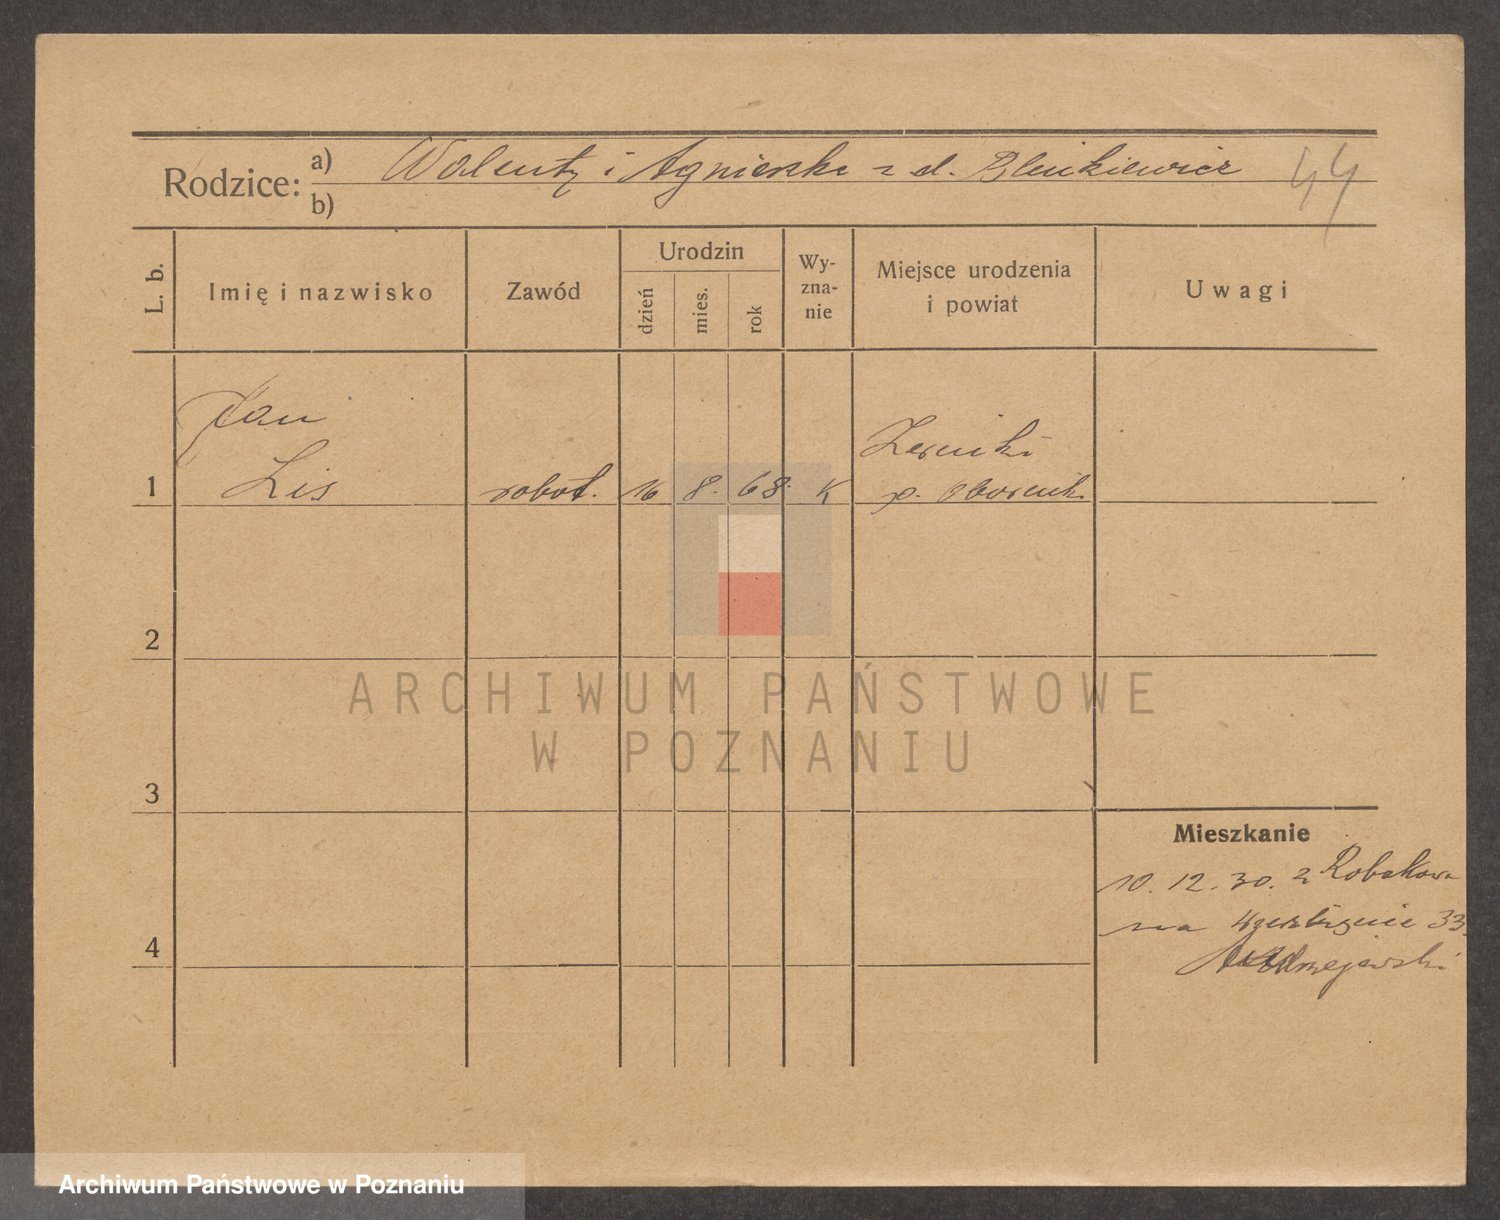 Rodzice:
a) Walenty i Agnieszka z d.
b)
44
L. b.
Imię i nazwisko
Zawód
Urodzin
dzień
mies.
rok
Wy-
zna-
nie
Miejsce urodzenia
i powiat
Uwagi
Jan
Lis
1
robot.
16
8.
68.
K
Żerniki
p. Obornik
2
3
4
Mieszkanie
10. 12. 30. z Robakowa
na 33.
Andrzejewski
ARCHIWUM PAŃSTWOWE
W POZNANIU
Archiwum Państwowe w Poznaniu